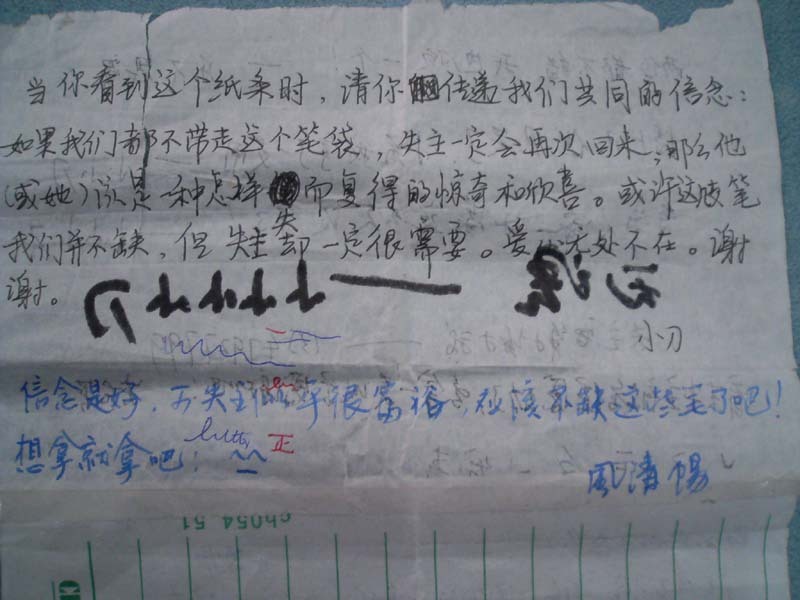 当你看到这个纸条时，请你传递我们共同的信念：
如果我们都不带走这个笔袋，失主一定会再次回来，那么他
(或她)该是一种怎样失而复得的惊奇和欣喜。或许这些笔
我们并不缺，但失主却一定很需要。爱心无处不在。谢
谢。
小刀
信念是好，失主很富裕，应该不缺这些笔了吧！
想拿就拿吧！正
風清暢
ch054 51